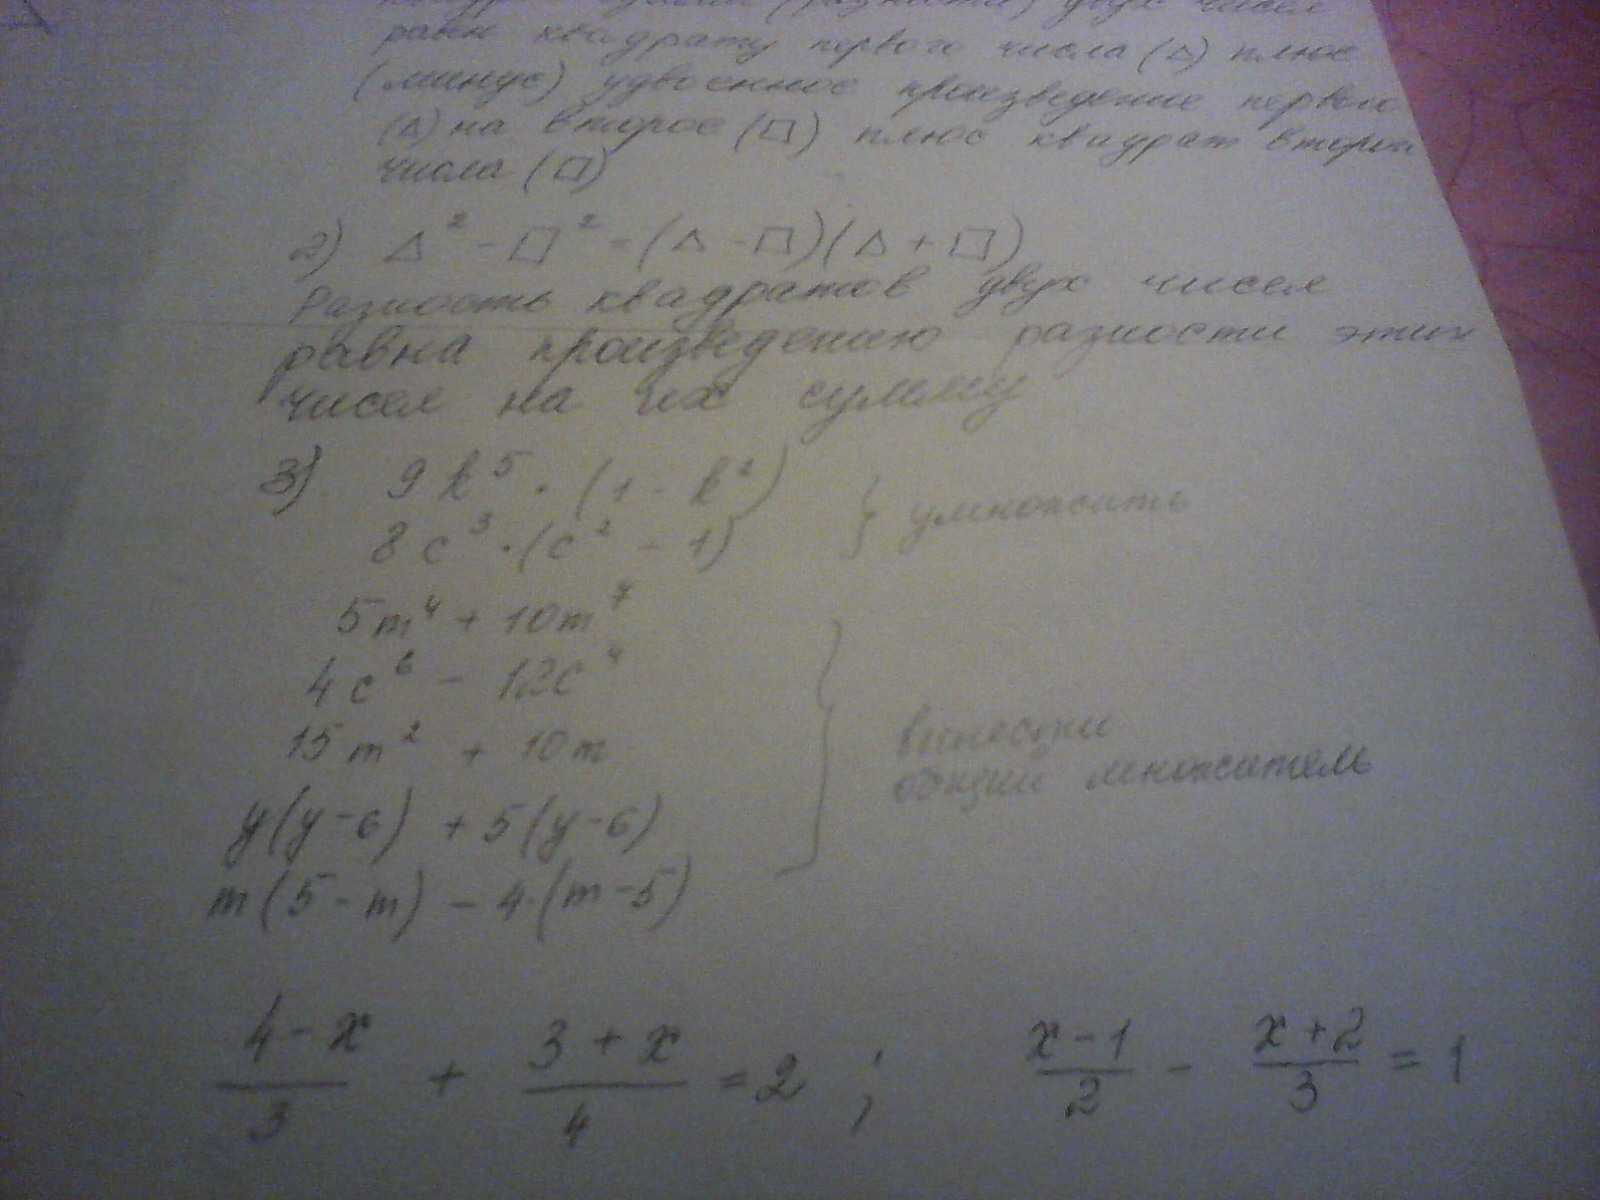 (разности) двух чисел
равен квадрату первого числа (△) плюс
(минус) удвоенное произведение первого
(△) на второе (□) плюс квадрат второго
числа (□)
2) △² - □² = (△ - □)(△ + □)
Разность квадратов двух чисел
равна произведению разности этих
чисел на их сумму
3) 9k⁵ · (1 - k²) } умножить
8c³ · (c² - 1)
5m⁴ + 10m⁷
4c⁶ - 12c⁴
15m² + 10m
y(y-6) + 5(y-6)
m(5-m) - 4·(m-5)
} вынести
общий множитель
(4-x)/3 + (3+x)/4 = 2 ; (x-1)/2 - (x+2)/3 = 1